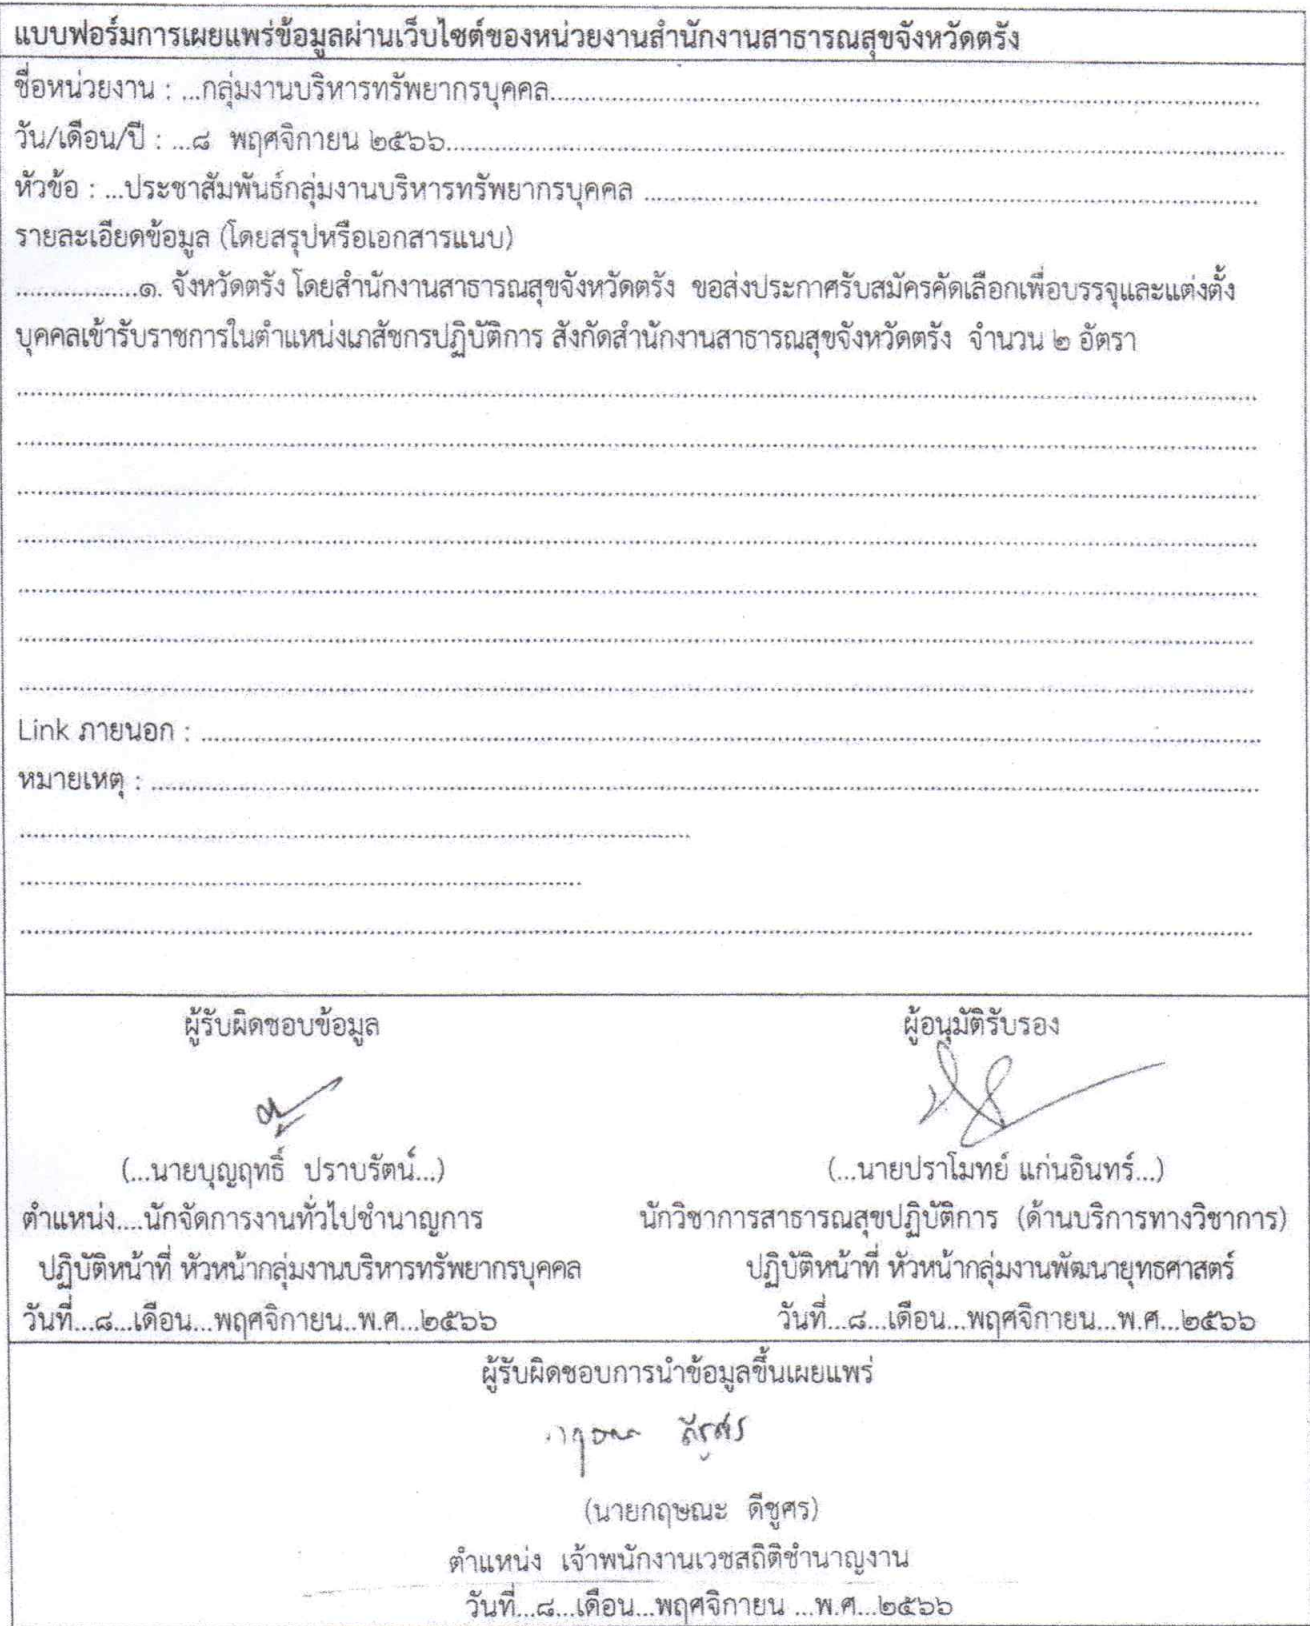 แบบฟอร์มการเผยแพร่ข้อมูลผ่านเว็บไซต์ของหน่วยงานสำนักงานสาธารณสุขจังหวัดตรัง
ชื่อหน่วยงาน : ...กลุ่มงานบริหารทรัพยากรบุคคล...
วัน/เดือน/ปี : ...๘ พฤศจิกายน ๒๕๖๖...
หัวข้อ : ...ประชาสัมพันธ์กลุ่มงานบริหารทรัพยากรบุคคล ...
รายละเอียดข้อมูล (โดยสรุปหรือเอกสารแนบ)
...๑. จังหวัดตรัง โดยสำนักงานสาธารณสุขจังหวัดตรัง ขอส่งประกาศรับสมัครคัดเลือกเพื่อบรรจุและแต่งตั้ง
บุคคลเข้ารับราชการในตำแหน่งเภสัชกรปฏิบัติการ สังกัดสำนักงานสาธารณสุขจังหวัดตรัง จำนวน ๒ อัตรา
Link ภายนอก : ...
หมายเหตุ : ...
ผู้รับผิดชอบข้อมูล
(...นายบุญฤทธิ์ ปราบรัตน์...)
ตำแหน่ง....นักจัดการงานทั่วไปชำนาญการ
ปฏิบัติหน้าที่ หัวหน้ากลุ่มงานบริหารทรัพยากรบุคคล
วันที่...๘...เดือน...พฤศจิกายน..พ.ศ...๒๕๖๖
ผู้อนุมัติรับรอง
(...นายปราโมทย์ แก่นอินทร์...)
นักวิชาการสาธารณสุขปฏิบัติการ (ด้านบริการทางวิชาการ)
ปฏิบัติหน้าที่ หัวหน้ากลุ่มงานพัฒนายุทธศาสตร์
วันที่...๘...เดือน...พฤศจิกายน...พ.ศ...๒๕๖๖
ผู้รับผิดชอบการนำข้อมูลขึ้นเผยแพร่
(นายกฤษณะ ดีชูศร)
ตำแหน่ง เจ้าพนักงานเวชสถิติชำนาญงาน
วันที่...๘...เดือน...พฤศจิกายน ...พ.ศ...๒๕๖๖